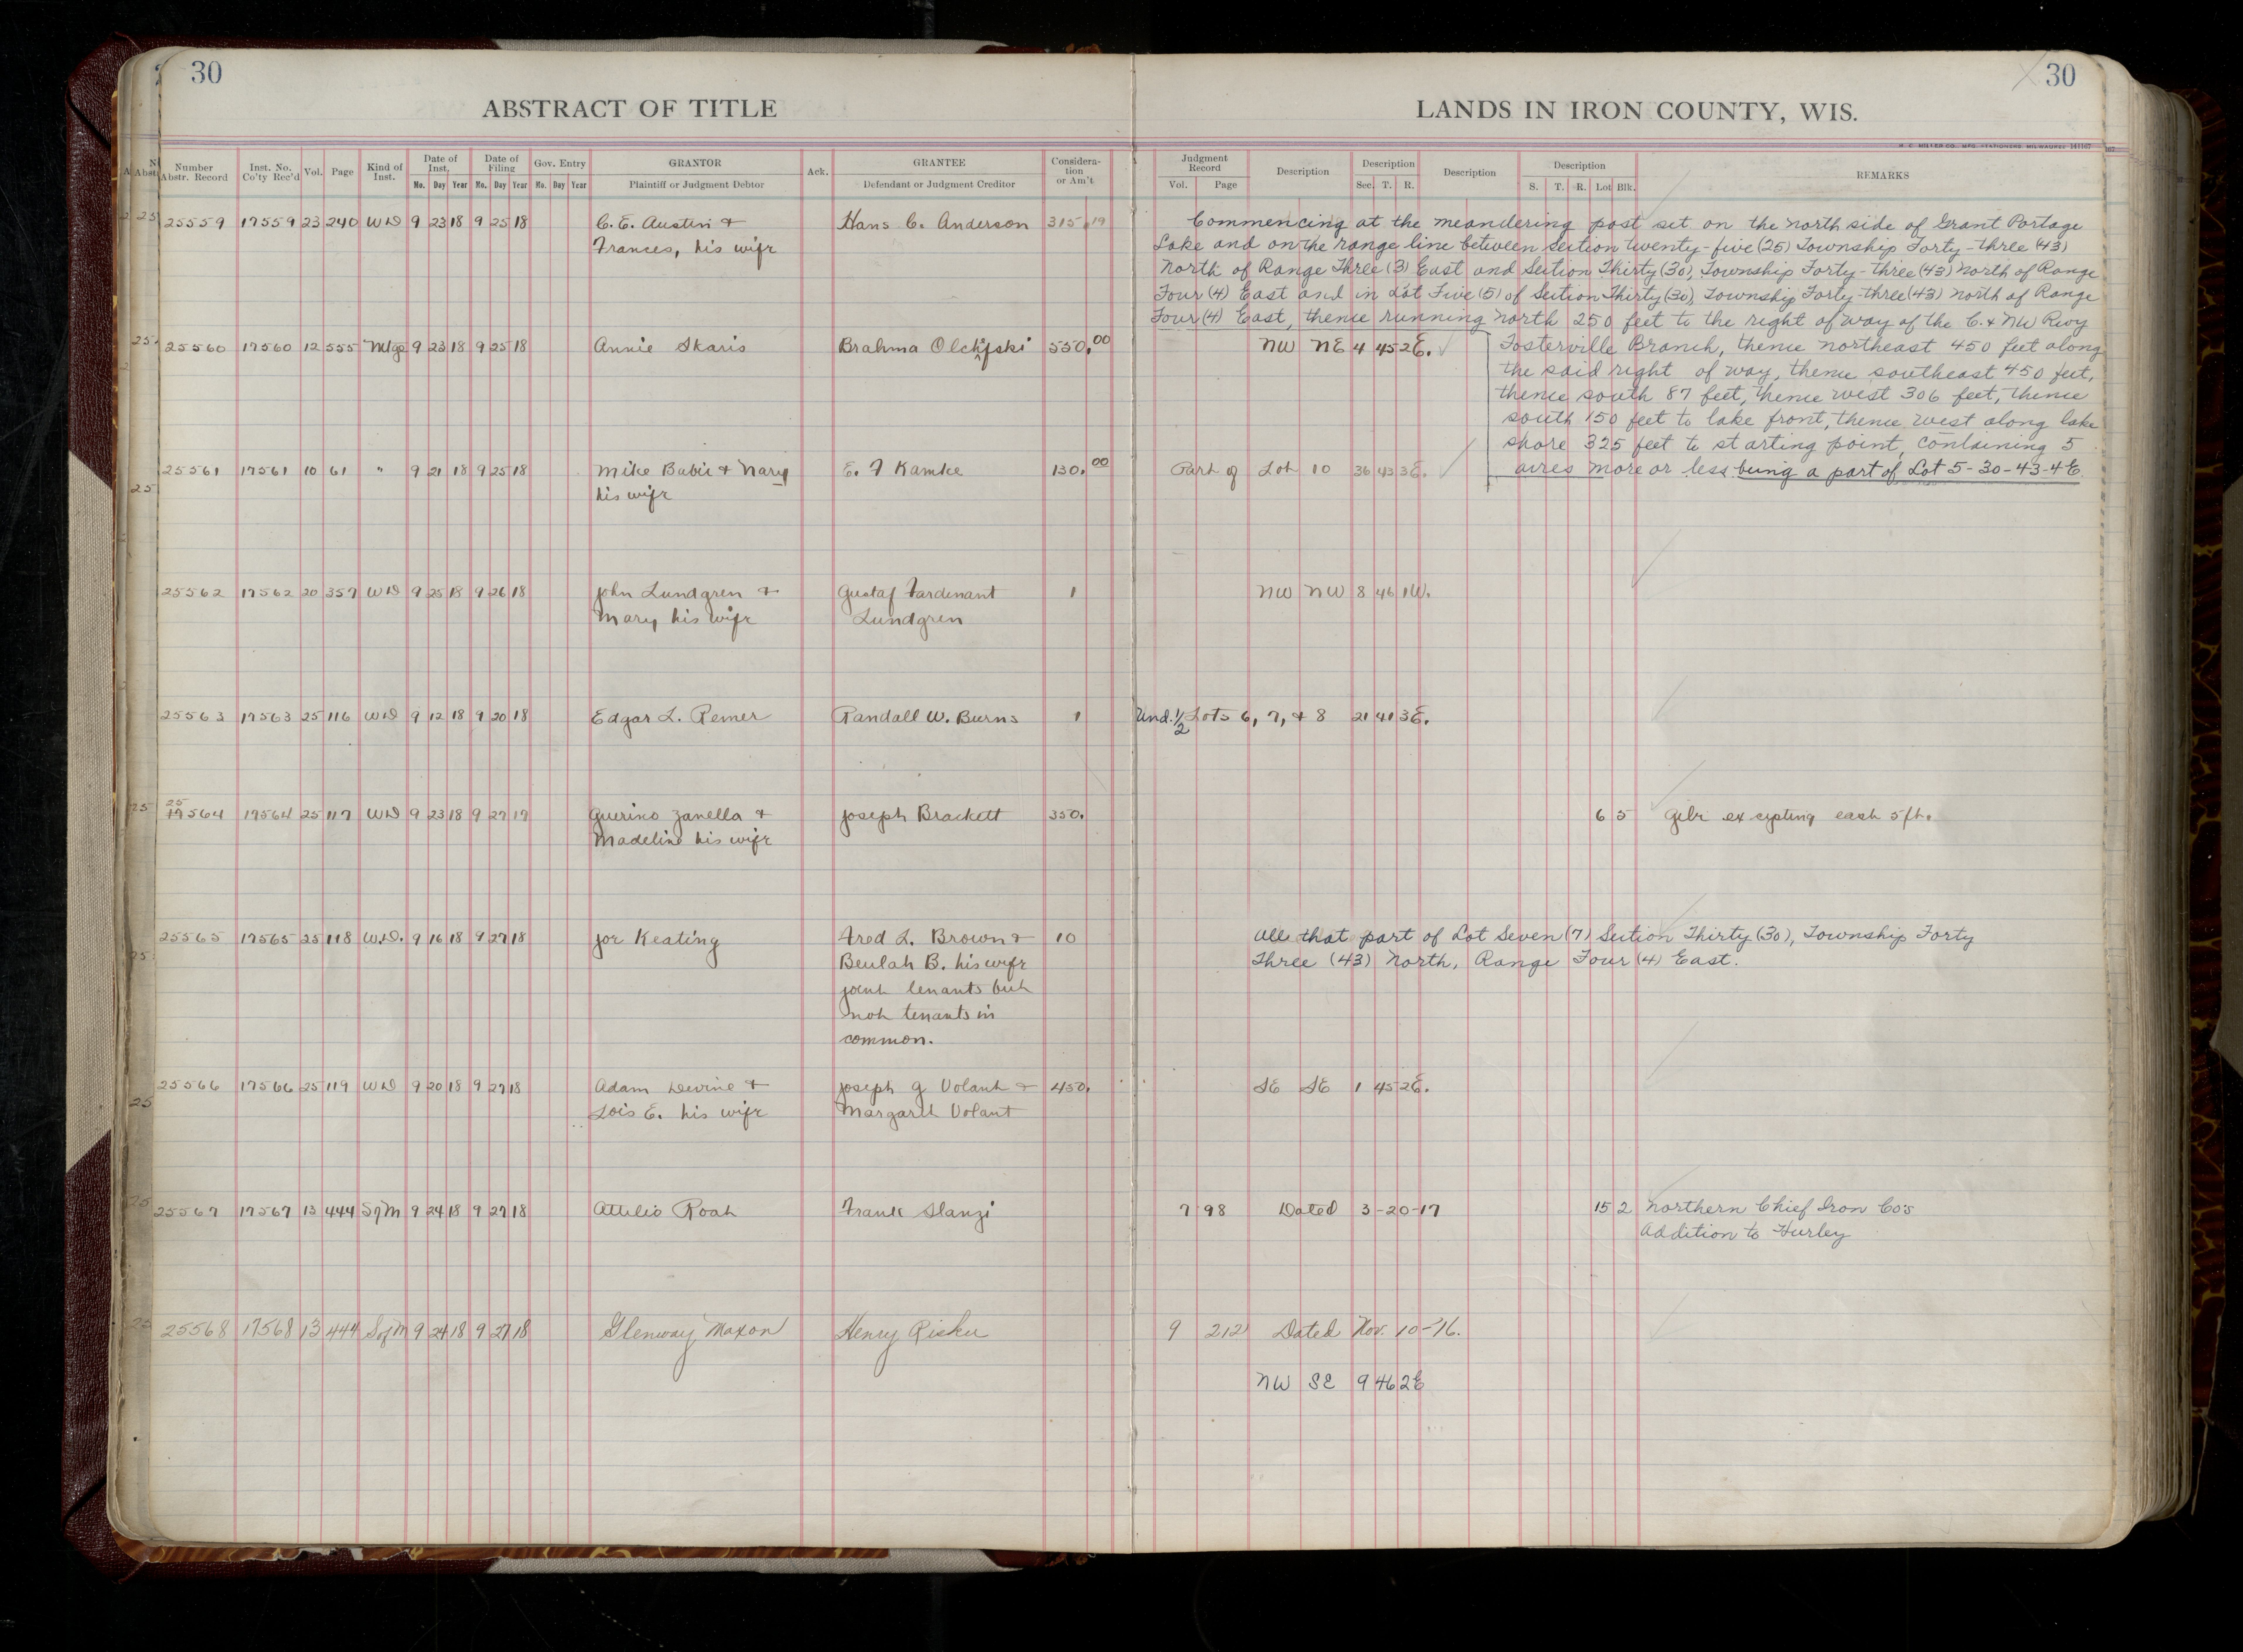 30
30
ABSTRACT OF TITLE
LANDS IN IRON COUNTY, WIS.
H. C. MILLER CO., MFG. STATIONERS, MILWAUKEE 141167
Number Abstr. Record | Inst. No. Co'ty Rec'd | Vol. | Page | Kind of Inst. | Date of Inst. Mo. Day Year | Date of Filing Mo. Day Year | Gov. Entry Mo. Day Year | GRANTOR Plaintiff or Judgment Debtor | Ack. | GRANTEE Defendant or Judgment Creditor | Considera-tion or Am't | Judgment Record Vol. Page | Description | Description Sec. T. R. | Description | Description S. T. R. Lot Blk. | REMARKS
25559 17559 23 240 WD 9 23 18 9 25 18 C. E. Austin & Hans C. Anderson 315.19
Frances, his wife
Commencing at the meandering post set on the north side of Grant Portage
Lake and on the range line between section twenty-five (25) Township Forty-three (43)
north of Range Three (3) East and Section Thirty (30), Township Forty-three (43) north of Range
Four (4) East and in Lot Five (5) of Section Thirty (30), Township Forty-three (43) north of Range
Four (4) East, thence running north 250 feet to the right of way of the C. & NW Rwy
Fosterville Branch, thence northeast 450 feet along
the said right of way, thence southeast 450 feet,
thence south 87 feet, thence west 306 feet, thence
south 150 feet to lake front, thence west along lake
shore 325 feet to starting point, containing 5
acres more or less being a part of Lot 5-30-43-4E
25560 17560 12 555 Mtge 9 23 18 9 25 18 Annie Skaris Brahma 550.00 NW NE 4 45 2E.
25561 17561 10 61 " 9 21 18 9 25 18 Mike Babic & Mary E. F Kamke 130.00 Part of Lot 10 36 43 3E.
his wife
25562 17562 20 357 WD 9 25 18 9 26 18 John Lundgren & Gustaf Fardenant 1 NW NW 8 46 1W.
Mary, his wife Lundgren
25563 17563 25 116 WD 9 12 18 9 20 18 Edgar L. Remer Randall W. Burns 1 Und. 1/2 Lots 6, 7, & 8 21 41 3E.
25
17564 17564 25 117 WD 9 23 18 9 27 17 Guerino Zanella & Joseph Brackett 350. 6 5 Gile excepting east 5 ft.
Madeline his wife
25565 17565 25 118 W.D. 9 16 18 9 27 18 Joe Keating Fred L. Brown & 10
Beulah B. his wife
joint tenants but
not tenants in
common.
All that part of Lot Seven (7) Section Thirty (30), Township Forty
Three (43) North, Range Four (4) East.
25566 17566 25 119 WD 9 20 18 9 27 18 Adam Devine & Joseph G Volant & 450. SE SE 1 45 2E.
Lois E. his wife Margaret Volant
25567 17567 13 444 SfM 9 24 18 9 27 18 Attilio Roat Frank Slanzi 7 98 Dated 3-20-17 15 2 Northern Chief Iron Co's
Addition to Hurley
25568 17568 13 444 SofM 9 24 18 9 27 18 Glenway Maxon Henry 9 212 Dated Nov. 10-'16.
NW SE 9 46 2E